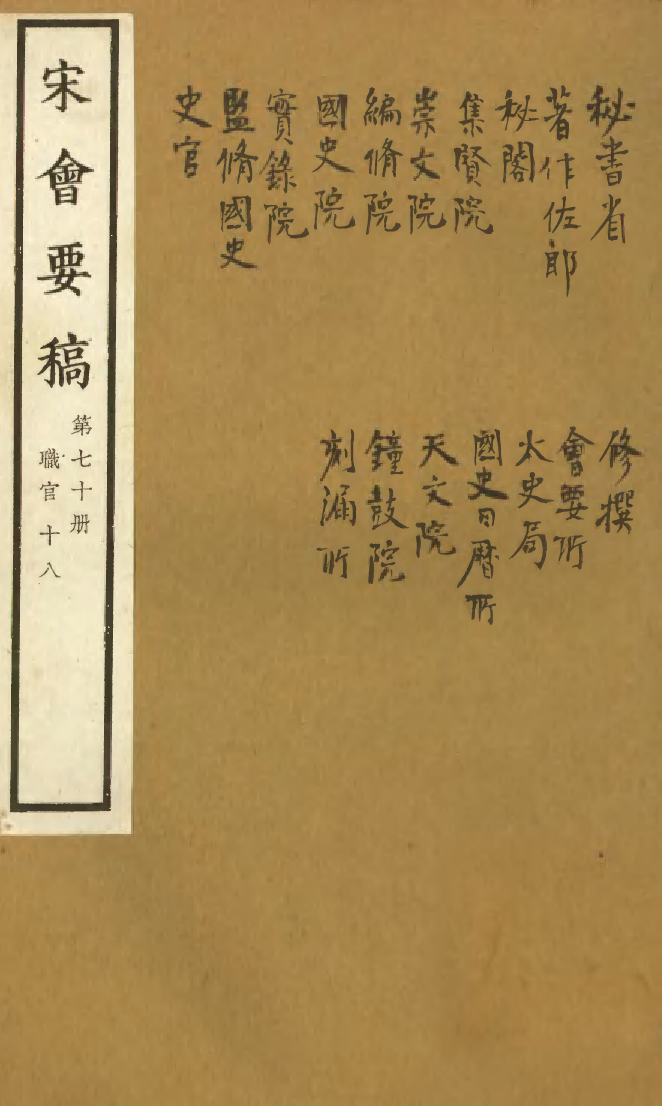 秘書省
著作佐郎
秘閣
集賢院
崇文院
編脩院
國史院
實錄院
監脩國史
史官
修撰
會要所
太史局
國史日曆所
天文院
鐘鼓院
刻漏所
宋會要稿
第七十册
職官十八